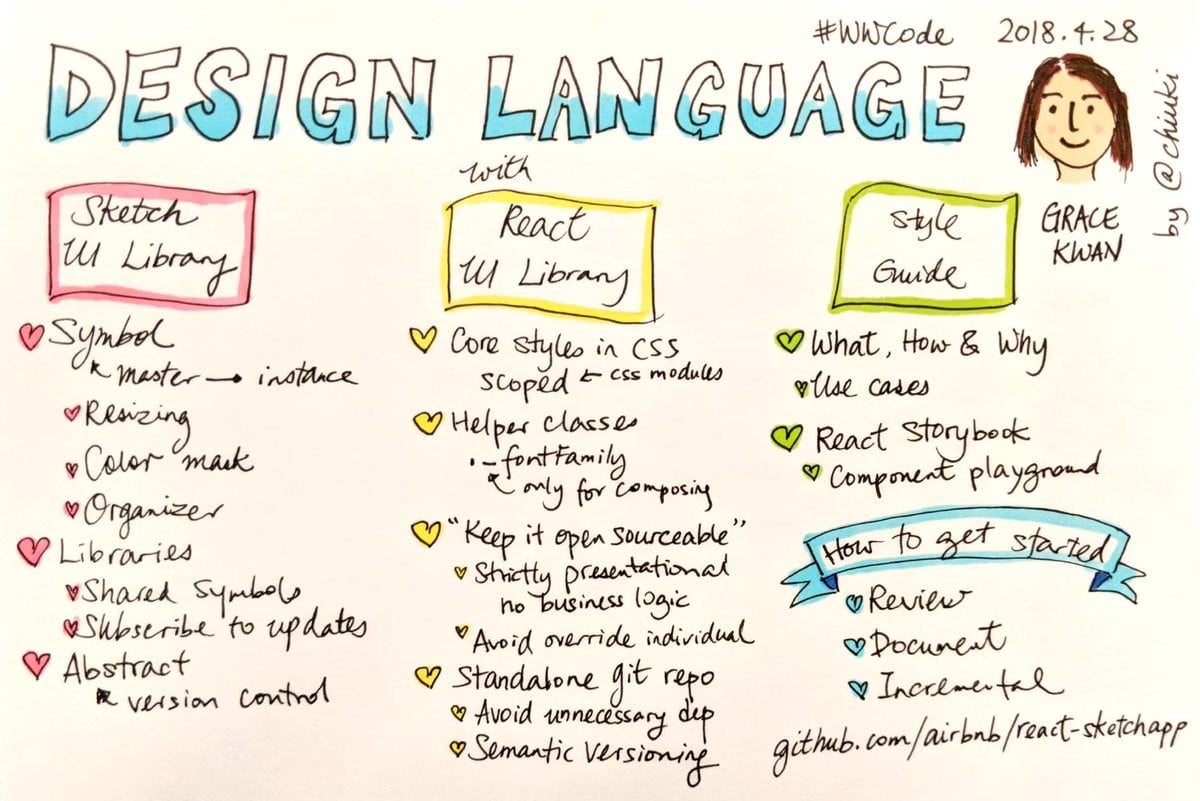 #WWCode 2018.4.28
DESIGN LANGUAGE
with
by @chiuki
GRACE
KWAN
Sketch
UI Library
Symbol
master → instance
Resizing
Color mask
Organizer
Libraries
Shared Symbols
Subscribe to updates
Abstract
version control
React
UI Library
Core styles in CSS
scoped ← CSS modules
Helper classes
.-fontFamily
only for composing
"Keep it open sourceable"
Strictly presentational
no business logic
Avoid override individual
Standalone git repo
Avoid unnecessary dep
Semantic versioning
Style
Guide
What, How & Why
Use cases
React Storybook
Component playground
How to get started
Review
Document
Incremental
github.com/airbnb/react-sketchapp